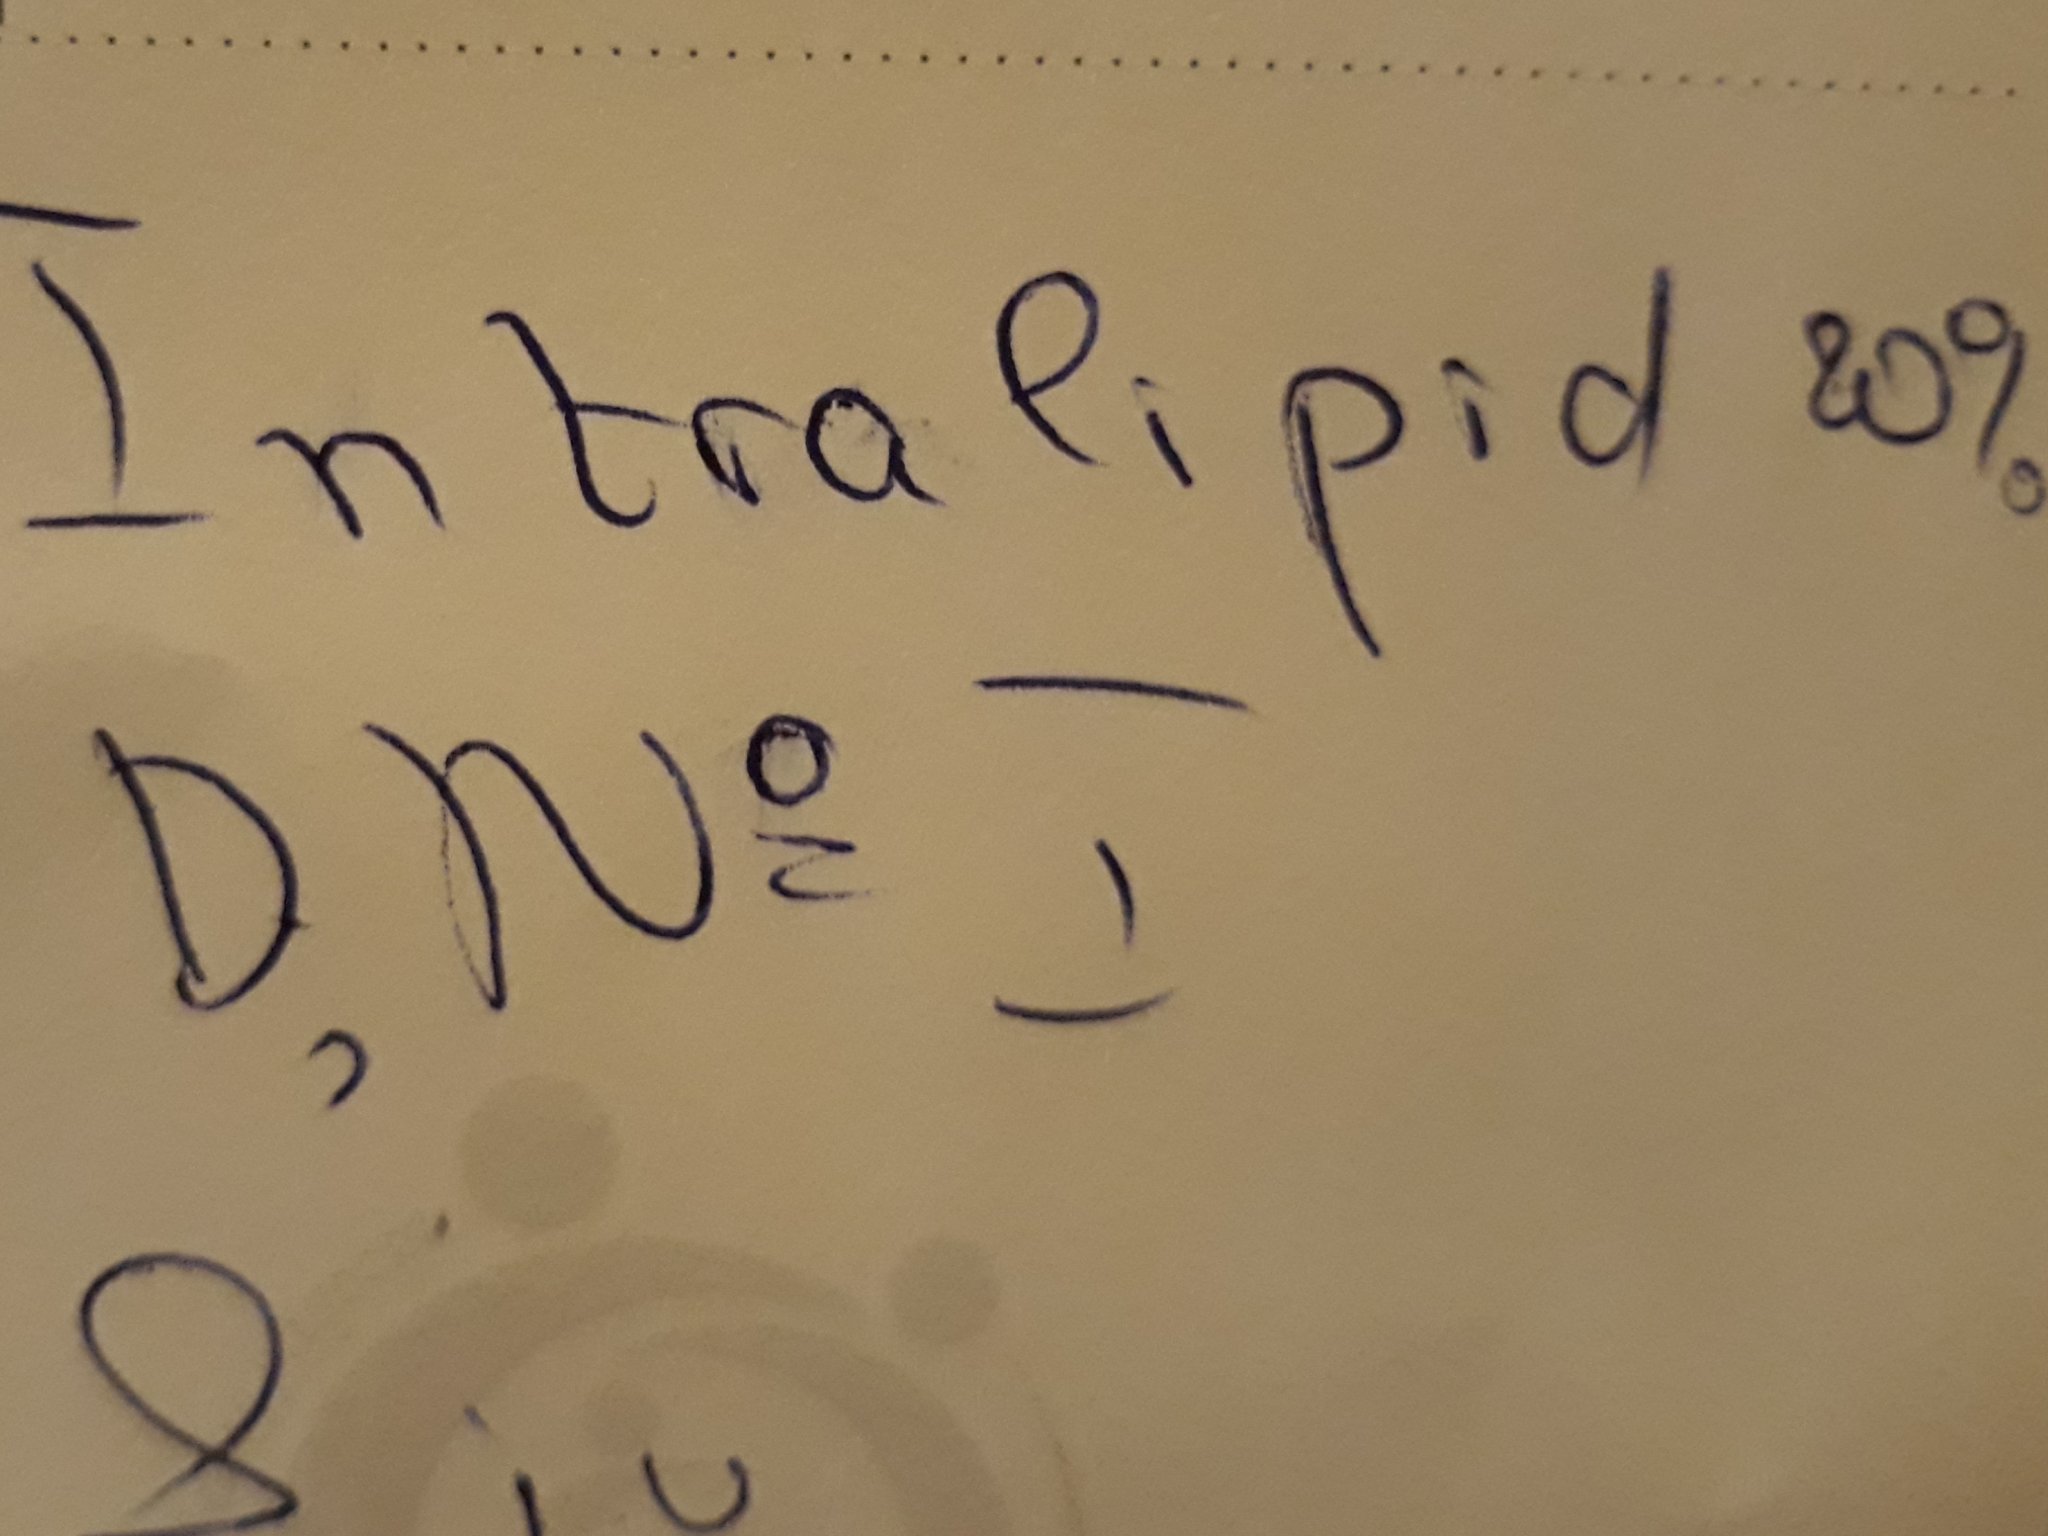 Intralipid 20%
D, № I
S iv